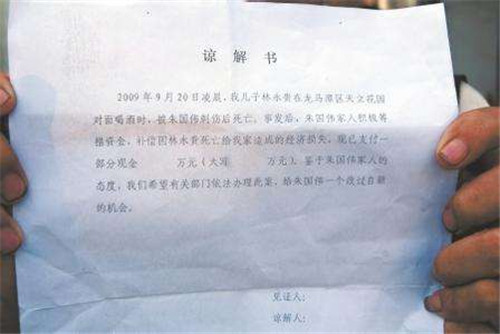 谅解书
2009年9月20日凌晨，我儿子林水贵在龙马潭区天立花园
对面喝酒时，被朱国伟刺伤后死亡。事发后，朱国伟家人积极筹
措资金，补偿因林水贵死亡给我家造成的经济损失，现已支付一
部分现金 万元（大写 万元）。鉴于朱国伟家人的
态度，我们希望有关部门依法办理此案，给朱国伟一个改过自新
的机会。
见证人：
谅解人：